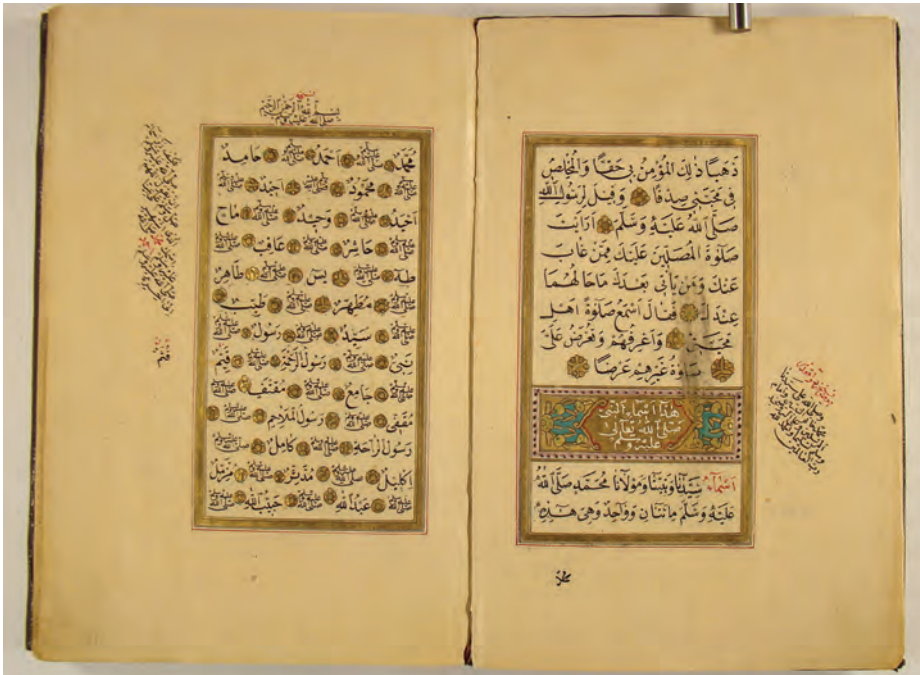 ذَهَبًا ذٰلِكَ المُؤْمِنُ بِي حَقًّا وَالمُخْلِصُ
فِي مَحَبَّتِي صِدْقًا وَقِيلَ لِرَسُولِ اللهِ
صَلَّى اللهُ عَلَيْهِ وَسَلَّمَ اَرَاَيْتَ
صَلٰوةَ المُصَلِّينَ عَلَيْكَ مِمَّنْ غَابَ
عَنْكَ وَمَنْ يَأْتِي بَعْدَكَ مَا حَالُهُمَا
عِنْدَكَ فَقَالَ اَسْمَعُ صَلٰوةَ اَهْلِ
مَحَبَّتِي وَاَعْرِفُهُمْ وَتُعْرَضُ عَلَيَّ
صَلٰوةُ غَيْرِهِمْ عَرْضًا
هذا اسماء النبي
صلى الله تعالى
عليه وسلم
اَسْمَاءُ سَيِّدِنَا وَنَبِيِّنَا وَمَوْلَانَا مُحَمَّدٍ صَلَّى اللهُ
عَلَيْهِ وَسَلَّمَ مِائَتَانِ وَوَاحِدٌ وَهِيَ هٰذِهِ
محمد
بسم الله الرحمن الرحيم
صلى الله عليه وسلم
مُحَمَّدٌ صلى الله عليه وسلم اَحْمَدُ صلى الله عليه وسلم حَامِدٌ
صلى الله عليه وسلم مَحْمُودٌ صلى الله عليه وسلم اَحِيدٌ صلى الله عليه وسلم
اُحَيْدٌ صلى الله عليه وسلم وَحِيدٌ صلى الله عليه وسلم مَاحٍ
صلى الله عليه وسلم حَاشِرٌ صلى الله عليه وسلم عَاقِبٌ صلى الله عليه وسلم
طٰهٰ صلى الله عليه وسلم يٰسٓ صلى الله عليه وسلم طَاهِرٌ
صلى الله عليه وسلم مُطَهَّرٌ صلى الله عليه وسلم طَيِّبٌ صلى الله عليه وسلم
صلى الله عليه وسلم سَيِّدٌ صلى الله عليه وسلم رَسُولٌ صلى الله عليه وسلم
نَبِيٌّ صلى الله عليه وسلم رَسُولُ الرَّحْمَةِ صلى الله عليه وسلم قَيِّمٌ
صلى الله عليه وسلم جَامِعٌ صلى الله عليه وسلم مُقْتَفٍ صلى الله عليه وسلم
مُقَفًّى صلى الله عليه وسلم رَسُولُ المَلَاحِمِ صلى الله عليه وسلم
رَسُولُ الرَّاحَةِ صلى الله عليه وسلم كَامِلٌ صلى الله عليه وسلم
اِكْلِيلٌ صلى الله عليه وسلم مُدَّثِّرٌ صلى الله عليه وسلم مُزَّمِّلٌ
صلى الله عليه وسلم عَبْدُ اللهِ صلى الله عليه وسلم حَبِيبُ اللهِ صلى الله عليه وسلم